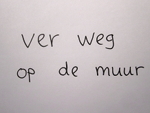 ver weg
op de muur